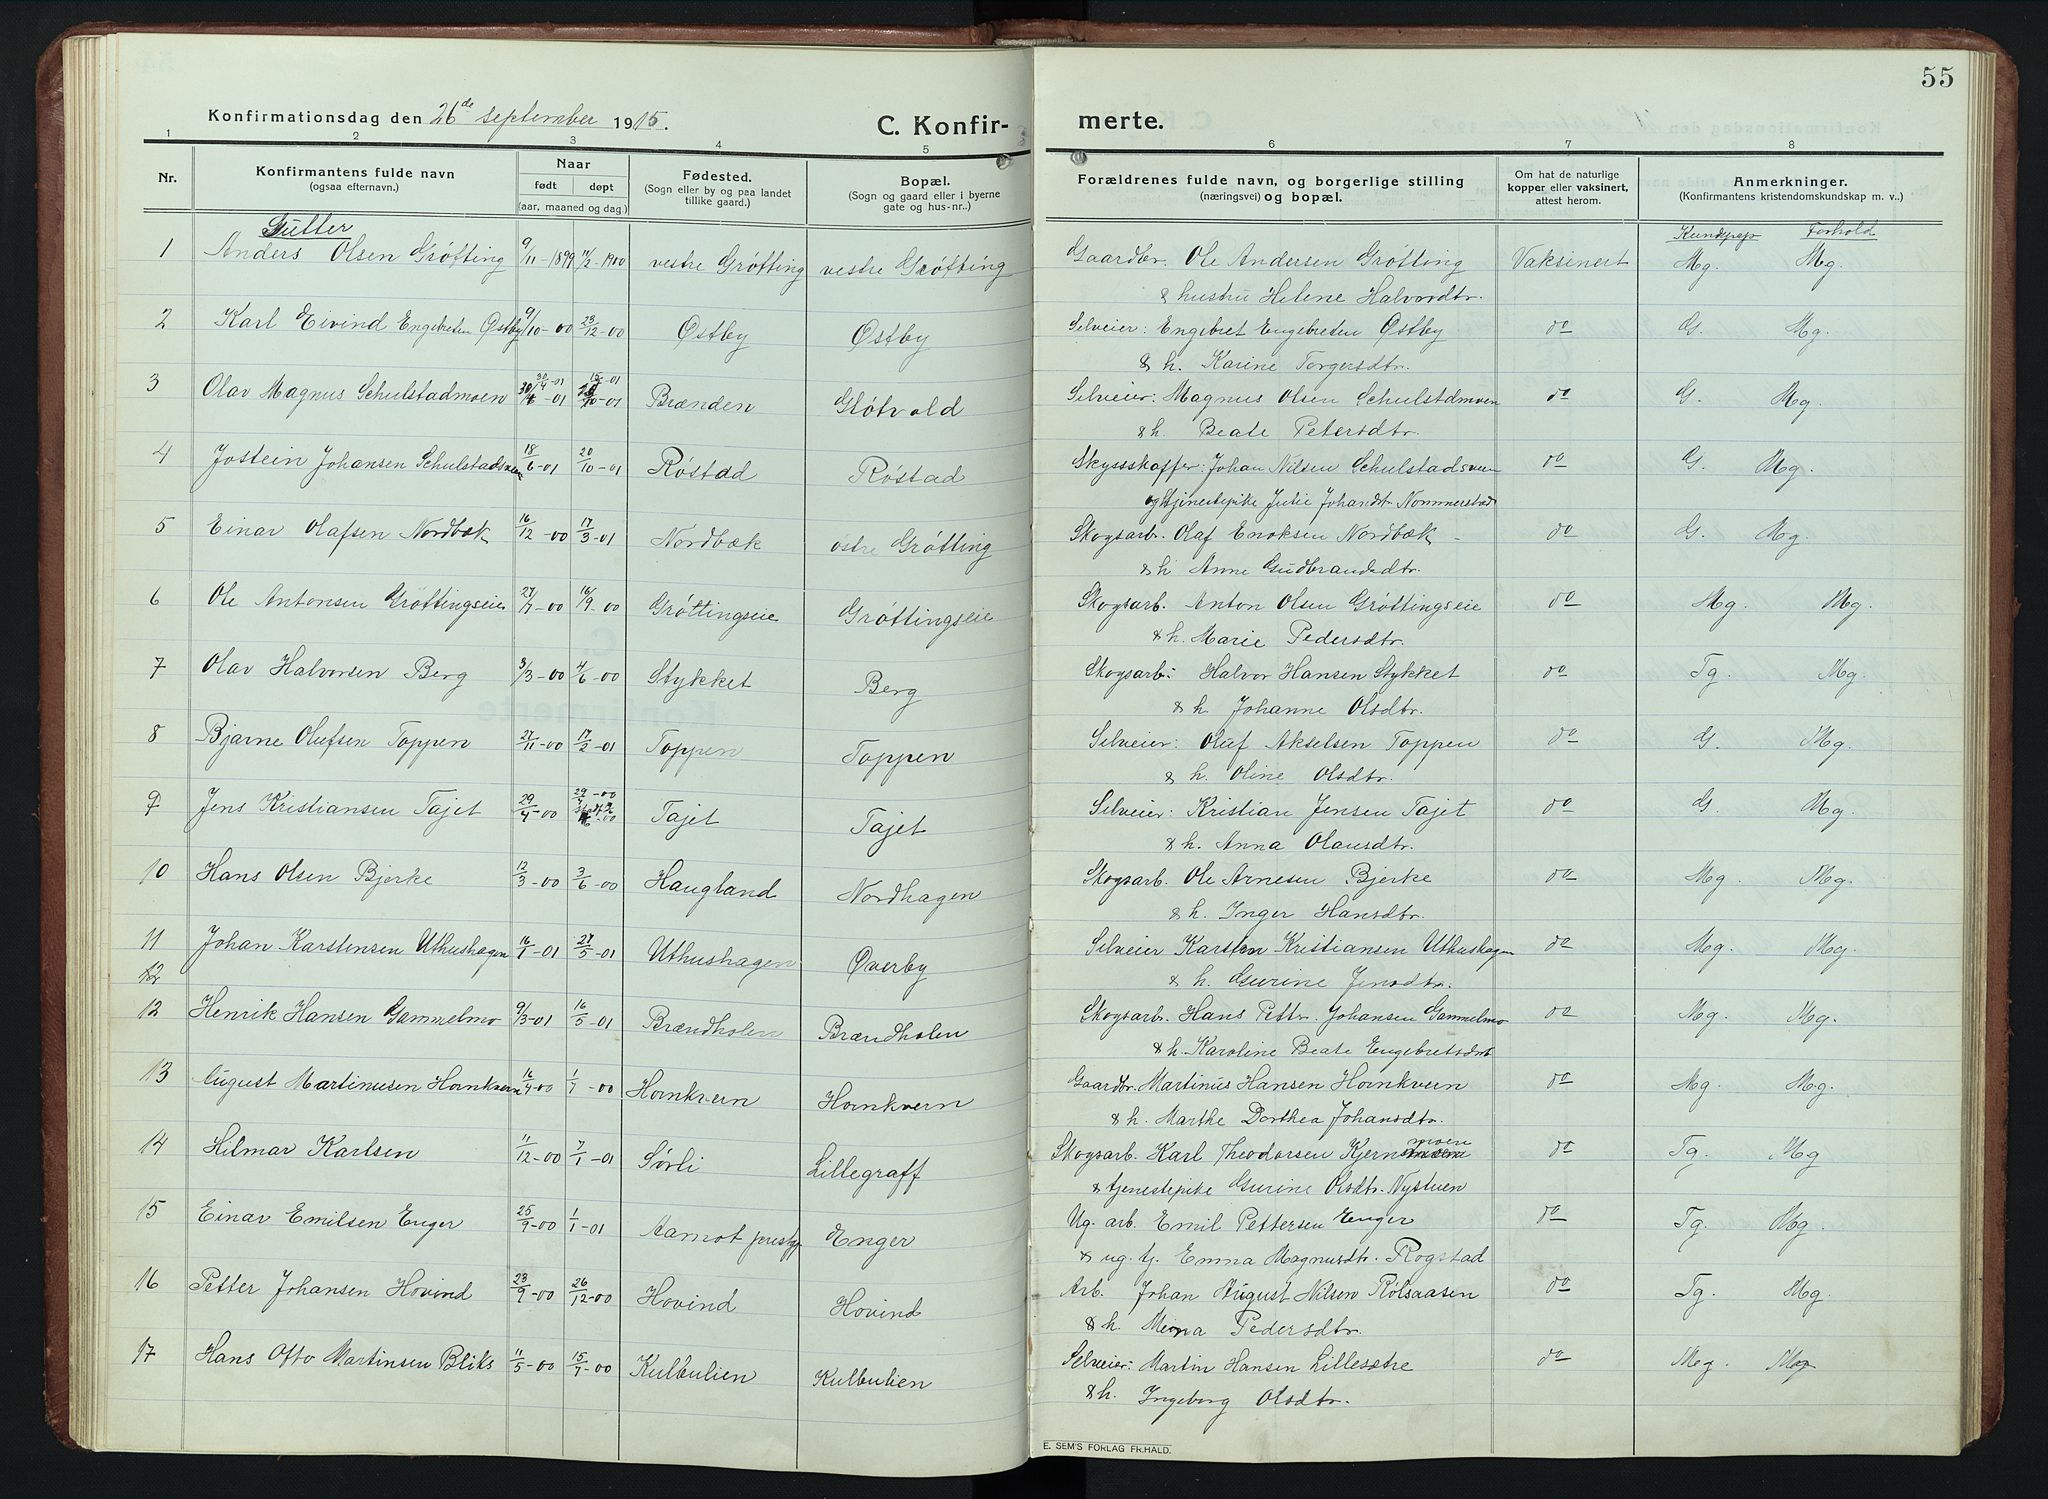 55
Konfirmationsdag den 26de september 1915.
C. Konfir-
merte.
1 2 3 4 5 6 7 8
Nr.
Konfirmantens fulde navn
(ogsaa efternavn.)
Naar
født døpt
(aar, maaned og dag.)
Fødested.
(Sogn eller by og paa landet
tillike gaard.)
Bopæl.
(Sogn og gaard eller i byerne
gate og hus-nr.)
Forældrenes fulde navn, og borgerlige stilling
(næringsvei) og bopæl.
Om hat de naturlige
kopper eller vaksinert,
attest herom.
Anmerkninger.
(Konfirmantens kristendomskundskap m. v.)
Gutter
Kundskap Forhold
1 Anders Olsen Grøtting 9/11-1899 11/2-1900 vestre Grøtting vestre Grøtting Gaardbr. Ole Andersen Grøtting Vaksinert Mg. Mg.
& hustru Helene Halvordtr.
2 Karl Eivind Engebretsen Østby 9/10-00 23/12-00 Østby Østby Selveier: Engebret Engebretsen Østby do G. Mg.
& h. Karine Torgersdtr.
30/4-01 15/-01
3 Olav Magnus Schulstadmoen 30/6-01 /10-01 Brænden Gløtvold Selveier: Magnus Olsen Schulstdmoen do G. Mg.
& h. Beate Petersdtr.
4 Jostein Johansen Schulstadsveen 18/6-01 20/10-01 Røstad Røstad Skyssskaffer: Johan Nilsen Schulstadsveen do G. Mg.
og tjenestepike Julie Johandtr Nommerstad
5 Einar Olafsen Nordbæk 16/12-00 17/3-01 Nordbæk østre Grøtting Skogsarb. Olaf Enoksen Nordbæk do G. Mg.
& h Anne Gudbrandsdtr.
6 Ole Antonsen Grøttingseie 27/7-00 16/9-00 Grøttingseie Grøttingseie Skogsarb. Anton Olsen Grøttingseie do Mg. Mg.
& h. Marie Pedersdtr.
7 Olav Halvorsen Berg 3/3-00 4/6-00 Stykket Berg Skogsarb: Halvor Hansen Stykket do Tg. Mg.
& h. Johanne Olsdtr.
8 Bjarne Olufsen Toppen 27/11-00 17/2-01 Toppen Toppen Selveier: Oluf Akselsen Toppen do G. Mg.
& h. Oline Olsdtr.
9 Jens Kristiansen Tajet 29/4-00 29/-00 Tajet Tajet Selveier: Kristian Jensen Tajet do G. Mg.
& h. Anna Olausdtr.
10 Hans Olsen Bjerke 12/3-00 3/6-00 Haugland Nordhagen Skogsarb. Ole Arnesen Bjerke do Mg. Mg.
& h. Inger Hansdtr.
11 Johan Karstensen Uthushagen 16/1-01 27/5-01 Uthushagen Øverby Selveier Karsten Kristiansen Uthushagen do Mg. Mg.
12
& h. Gurine Jensdtr.
12 Henrik Hansen Gammelmo 9/3-01 16/5-01 Brændholen Brændholen Skogsarb. Hans Petter Johansen Gammelmo do Mg. Mg.
& h. Karoline Beate Engebretsdtr
13 August Martinusen Hornkvern 16/4-00 1/7-00 Hornkvern Hornkvern Gaardbr. Martinus Hansen Hornkvern do Mg. Mg.
& h. Marthe Dorthea Johansdtr.
14 Hilmar Karlsen 11/12-00 7/1-01 Sørli Lillegraff Skogsarb. Karl Theodorsen Kjernmoen do Tg. Mg
& tjenestepike Gurine Olsdtr. Nystuen
15 Einar Emilsen Enger 25/9-00 1/1-01 Aamot prestgj Enger Ug. arb. Emil Pettersen Enger do Tg. Mg.
& ug. tj. Emma Magnusdtr. Rogstad
16 Petter Johansen Hovind 23/9-00 26/12-00 Hovind Hovind Arb. Johan August Nilsen Rølsaasen do Tg. Mg.
& h. Mina Pedersdtr.
17 Hans Otto Martinsen Bliks 11/5-00 15/7-00 Kulbulien Kulbulien Selveier: Martin Hansen Lillesætre do Mg. Mg
& h. Ingeborg Olsdtr.
E. SEM'S FORLAG FR.HALD.